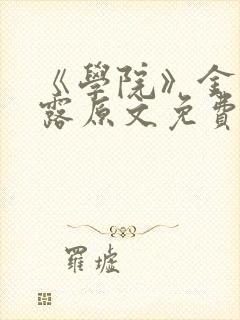 《學院》金
露原文免費
羅墟